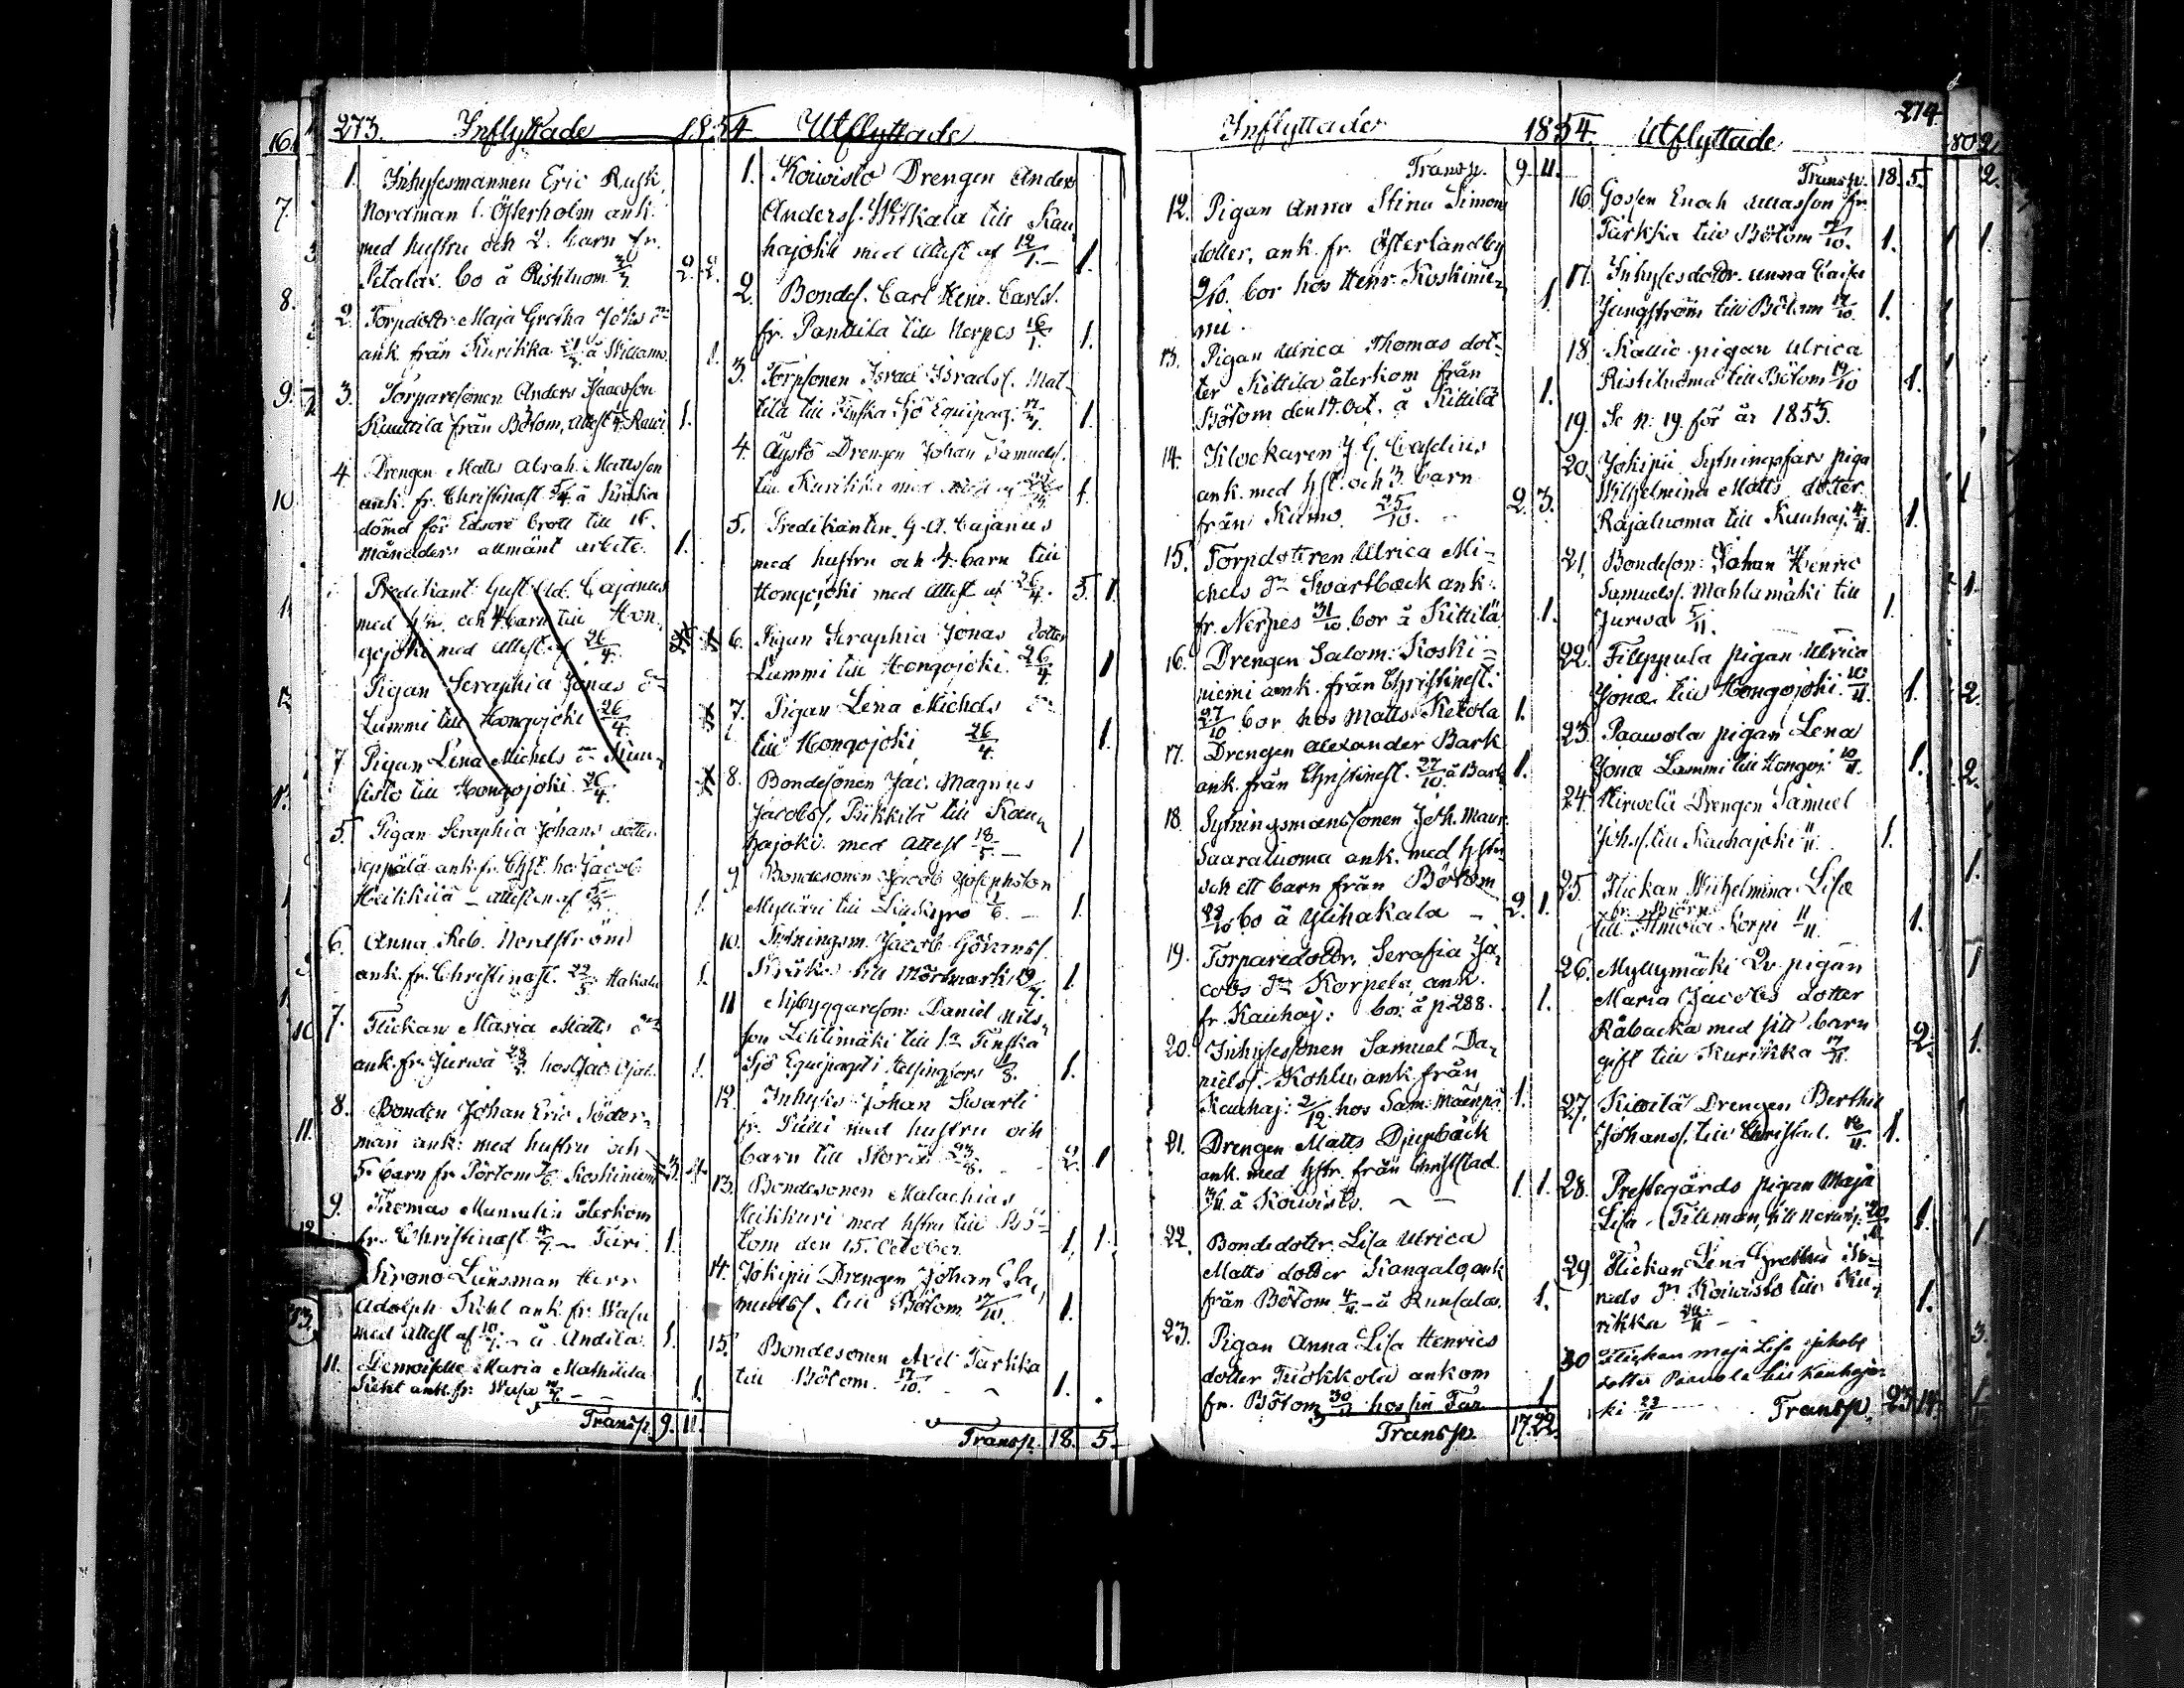 273. Inflyttade 1854. Utflyttade
1. Inhysesmannen Eric Rusk,
Nordman l. Österholm ank.
med hustru och 2. barn fr.
Petalax. bo å Ristiluom 2. 2.
2. Torpdottr. Maja Greska Johs dr
ank. från Kurikka å Willams. 1.
3. Torparesonen Anders Isaacsson
Kuuttila från Bötom, 1.
4 Drengen Matts Abrah. Mattsson
ank. fr. Christinast. 5/4 å
dömd för Edsöre brott till 16.
månaders allmänt arbete. 1.
Predikant. Gust. Ad. Cajanus
med och 4 barn till Hon
gojoki med attest af 26/4.
Pigan Seraphia Jonas dr
Lummi till Hongojoki 26/4.
7 Pigan Lena Michels dr
listo till Hongojoki 26/4.
5. Pigan Seraphia Johans dotter
Seppälä ank. fr. Chst. hos Jacob
Heikkilä – attesten af 1.
6. Anna Reb. Nordström
ank. fr. Christinast. Hakola 1.
7. Flickan Maria Matts dr
ank. fr. Jurwa hos Jac. 1.
8. Bonden Johan Eric Söder-
man ank. med hustru och
5. barn fr. Pörtom Koskiniemi 3. 4.
9. Thomas Munsulin återkom
fr. Christinast. 4/7 – Turi. 1.
Krono Länsman Herr
Adolph Kihl ank. fr. Wasa
med attest af 10/7 – å Andila. 1.
11. Demoiselle Maria Mathilda
Kihl ank. fr. Wasa 1.
Transp. 9. 11.
1. Koiwisto Drengen Anders
Anderss. Witkala till Kau
hajoki med attest af 12/1. – 1.
2. Bondes. Carl Henr. Carls.
fr. Panttila till Nerpes 16/1. 1.
3. Torpsonen Israel Israels. Mat-
tila till Finska Sjö Equipag. 1.
4. Äystö Drengen Johan Samuels.
till Kurikka med attest af 1.
5. Predikanten G. A. Cajanus
med hustru och 4. barn till
Hongojoki med attest af 26/4. 5. 1.
6. Pigan Seraphia Jonas dotter
Lummi till Hongojoki 26/4. 1
7. Pigan Lena Michels dr
till Hongojoki 26/4. 1.
8. Bondesonen Jac. Magnus
Jacobs. Pikkilä till Kau
hajoki med attest 18/5. – 1
9. Bondesonen Jacob Josephsson
Mylläri till 1/6. – 1.
10. Sytningsm. Jacob
till Mörtmark 19/7. 1.
11 Nybyggareson: Daniel Nils-
son Lehtimäki till 1a Finska
Sjö Equipaget i Helsingfors 1/8. 1.
12. Inhyses Johan Swarti
fr. Pulli med hustru och
barn till Storå 23/8. 2. 1
13. Bondesonen Malachias
Heikkuri med hstru till Bö-
tom den 15. October 1. 1.
14. Jokipii Drengen Johan Sa-
muels. till Bötom 17/10. 1.
15. Bondesonen Axel Turkka
till Bötom. 17/10. 1.
Transp. 18. 5.
Inflyttade 1854. Utflyttade 274
Transp. 9. 11.
12. Pigan Anna Stina Simons
dotter, ank. fr. Österlandby
9/10. bor hos Henr. Koskinie
mi. 1
13. Pigan Ulrica Thomas dot-
ter Kittilä återkom från
Bötom den 17. Oct. å Kittilä 1.
14. Klockaren J. G. Castrius
ank. med hst. och 3. barn
från Kumo. 25/10. 2. 3.
15. Torpdottren Ulrica Mi-
chels dr Swartback ank.
fr. Nerpes 31/10. bor å Kittilä 1.
16. Drengen Salom. Koski-
niemi ank. från Christinest.
27/10 bor hos Matts Ketola 1.
17. Drengen Alexander Bark
ank. från Christinest. 27/10. å Bark 1.
18. Sytningsmanssonen Joh. Maur.
Saaraluoma ank. med hstr.
och ett barn från Bötom
22/10 bo å Ylihakala – 2. 1.
19. Torparedottr. Serafia Ja-
cobs dr Korpela ank.
fr. Kauhaj: bor: å p. 288. 1.
20. Inhysessonen Samuel Da-
niels. Kohlu ank. från
Kauhaj: 2/12. hos Sam. Mäenpä 1.
21. Drengen Matts Djupbäck
ank. med hstr. från Christstad.
å Koiwisto. 1. 1.
22. Bondedoter. Lisa Ulrica
Matts dotter Kangalo, ank
från Bötom 4/11 – å Runsala. 1.
23. Pigan Anna Lisa Henrics
dotter Tuokkola ankom
fr. Bötom 30/11 hos sin Far 1.
Transp. 17. 22.
Transp. 18. 5.
16. Gossen Enoch
Turkka till Bötom 17/10. 1.
17. Inhysesdottr. Anna Caisa
Jungström till Bötom 17/10. 1.
18. Kallio pigan Ulrica
Ristiluoma till Bötom 19/10 1.
19. Se N: 19. för år 1853.
20. Jokipii Sytningsfars piga
Wilhelmina Matts dotter
Rajaluoma till Kauhaj. 4/11. 1.
21. Bondeson: Johan Henric
Samuels. Mahlamäki till
Jurwa 5/11. 1.
22. Filppula pigan Ulrica
Jonæ till Hongojoki. 10/11. 1.
23. Paawola pigan Lena
Jonæ Lammi till Hongoj. 10/11. 1.
24. Hirwelä Drengen Samuel
Johs. till Kauhajoki 11/11. 1.
25. Flickan Wilhelmina Lisa
till Ilmola Korpi 11/11. 1.
26. Myllymäki Qv. pigan
Maria Jacobs dotter
Råbacka med sitt barn
gift till Kurikka 17/11. 2.
27. Kiwilä Drengen Berthil
Johans. till Christad. 1.
28. Prestegårds pigan Maja
Lisa Tillman, till 20/11 1.
29. Flickan Lena Gretha
dr Koiwisto till Ku-
rikka 1.
30 Flickan Maja Lisa Jakobs
dotter Paavola till Kauhajo-
ki 23/11
Transp. 23. 14.